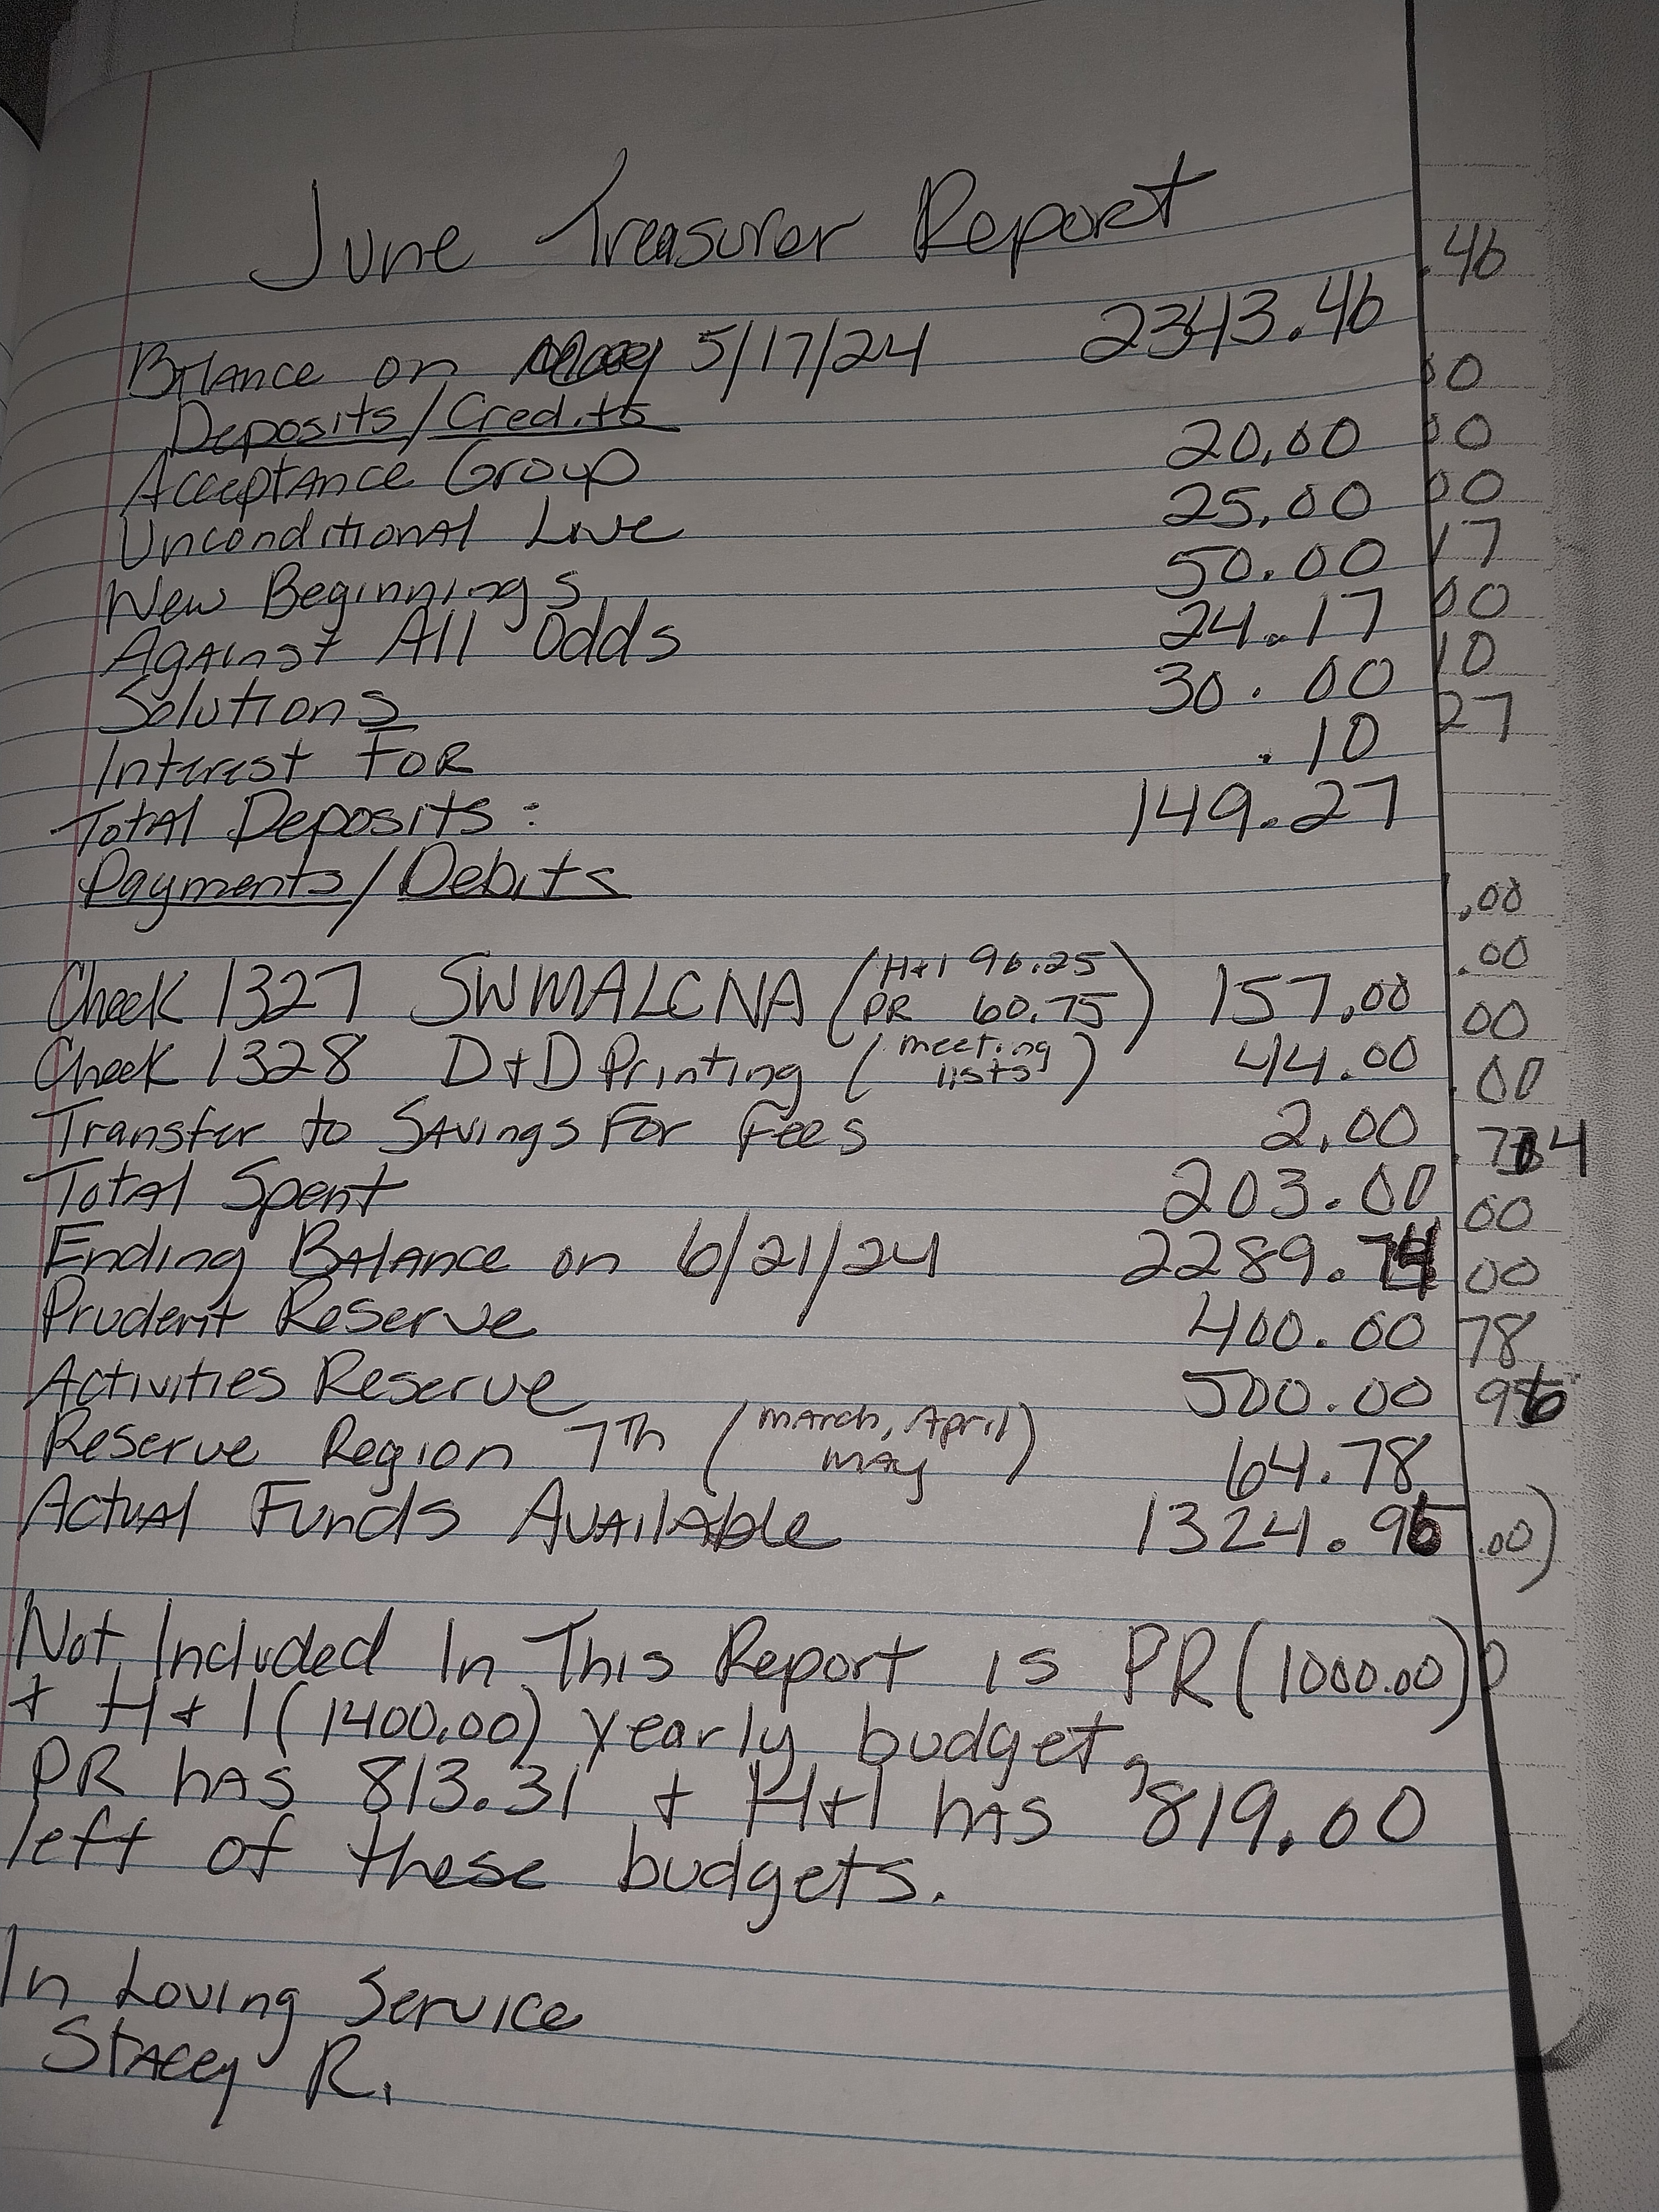 June Treasurer Report
Balance on 5/17/24 2343.46
Deposits/Credits
Acceptance Group 20.00
Unconditional Love 25.00
New Beginnings 50.00
Against All Odds 24.17
Solutions 30.00
Interest FOR .10
Total Deposits: 149.27
Payments/Debits
Check 1327 SWMALCNA (H+I 96.25 PR 60.75) 157.00
Check 1328 D+D Printing (meeting lists) 44.00
Transfer to Savings For Fees 2.00
Total Spent 203.00
Ending Balance on 6/21/24 2289.74
Prudent Reserve 400.00
Activities Reserve 500.00
Reserve Region 7th (March, April May) 64.78
Actual Funds Available 1324.96
Not Included In This Report is PR (1000.00)
+ H+I (1400.00) yearly budget,
PR has 813.31 + H+I has 819.00
left of these budgets.
In Loving Service
Stacey R.
.46
0
00
00
17
00
10
27
.00
.00
00
.00
00
00
78
.00)
0